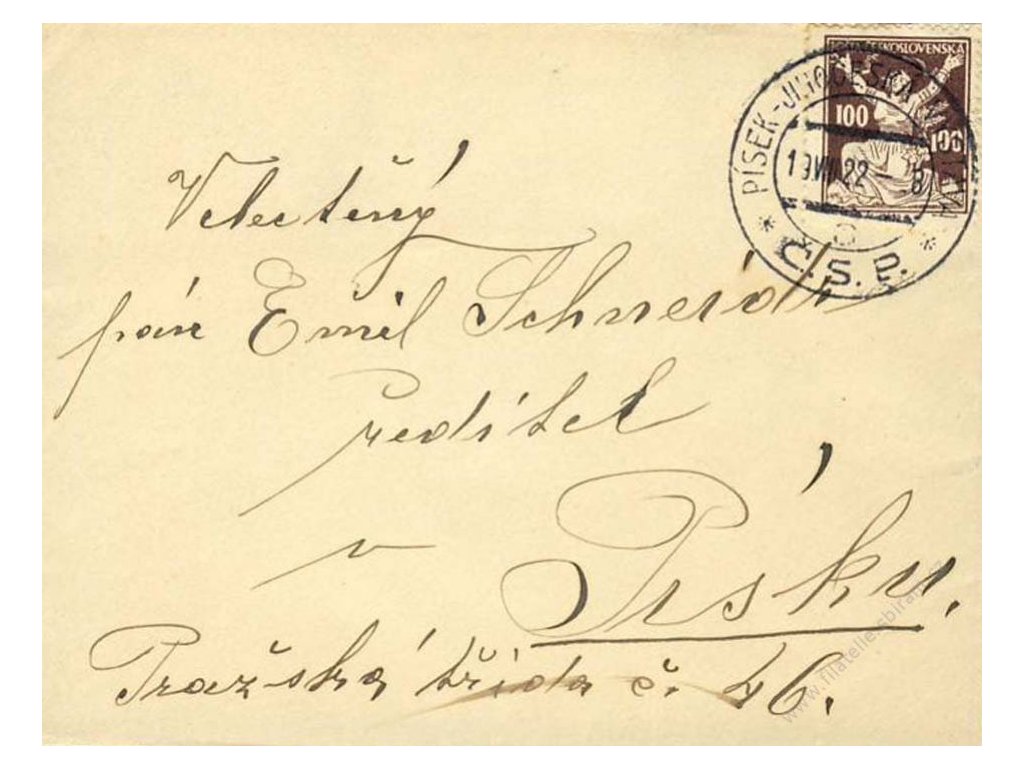 ČESKOSLOVENSKÁ
100 100
PÍSEK-JIHOČESKÁ
19 VII 22 - 8
Č.S.P.
Velectěný
pán Emil Schneidr
ředitel
v Písku,
Pražská třída č. 46.
www.filatelie-sbirani